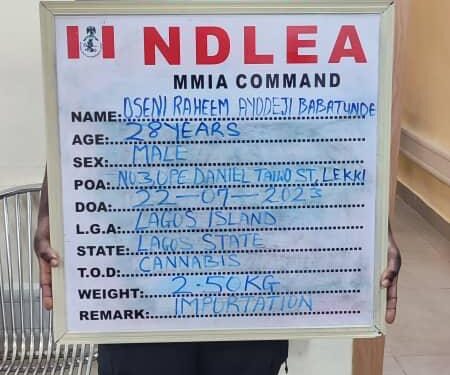 NDLEA
MMIA COMMAND
NAME: OSENI RAHEEM AYODEJI BABATUNDE
AGE: 28 YEARS
SEX: MALE
POA: NO3, OPE DANIEL TAIWO ST. LEKKI
DOA: 22-07-2023
L.G.A: LAGOS ISLAND
STATE: LAGOS STATE
T.O.D: CANNABIS
WEIGHT: 2.50KG
REMARK: IMPORTATION